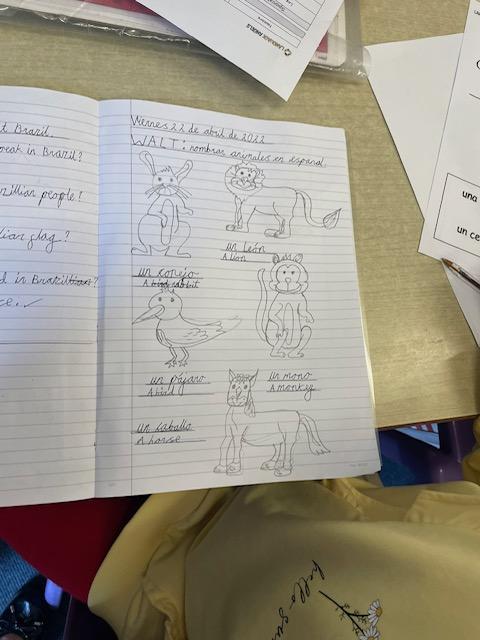 LANGUAGE ANGELS
t Brazil
peak in Brazil?
zillian people?
lian flag?
d in Brazil
ce. ✓
Viernes 22 de abril de 2022
WALT: nombras animales en espanol.
un león
A lion
un conejo
A rabbit
un pájaro
A bird
un mono
A monkey
un caballo
A horse
una
un ce
hello su